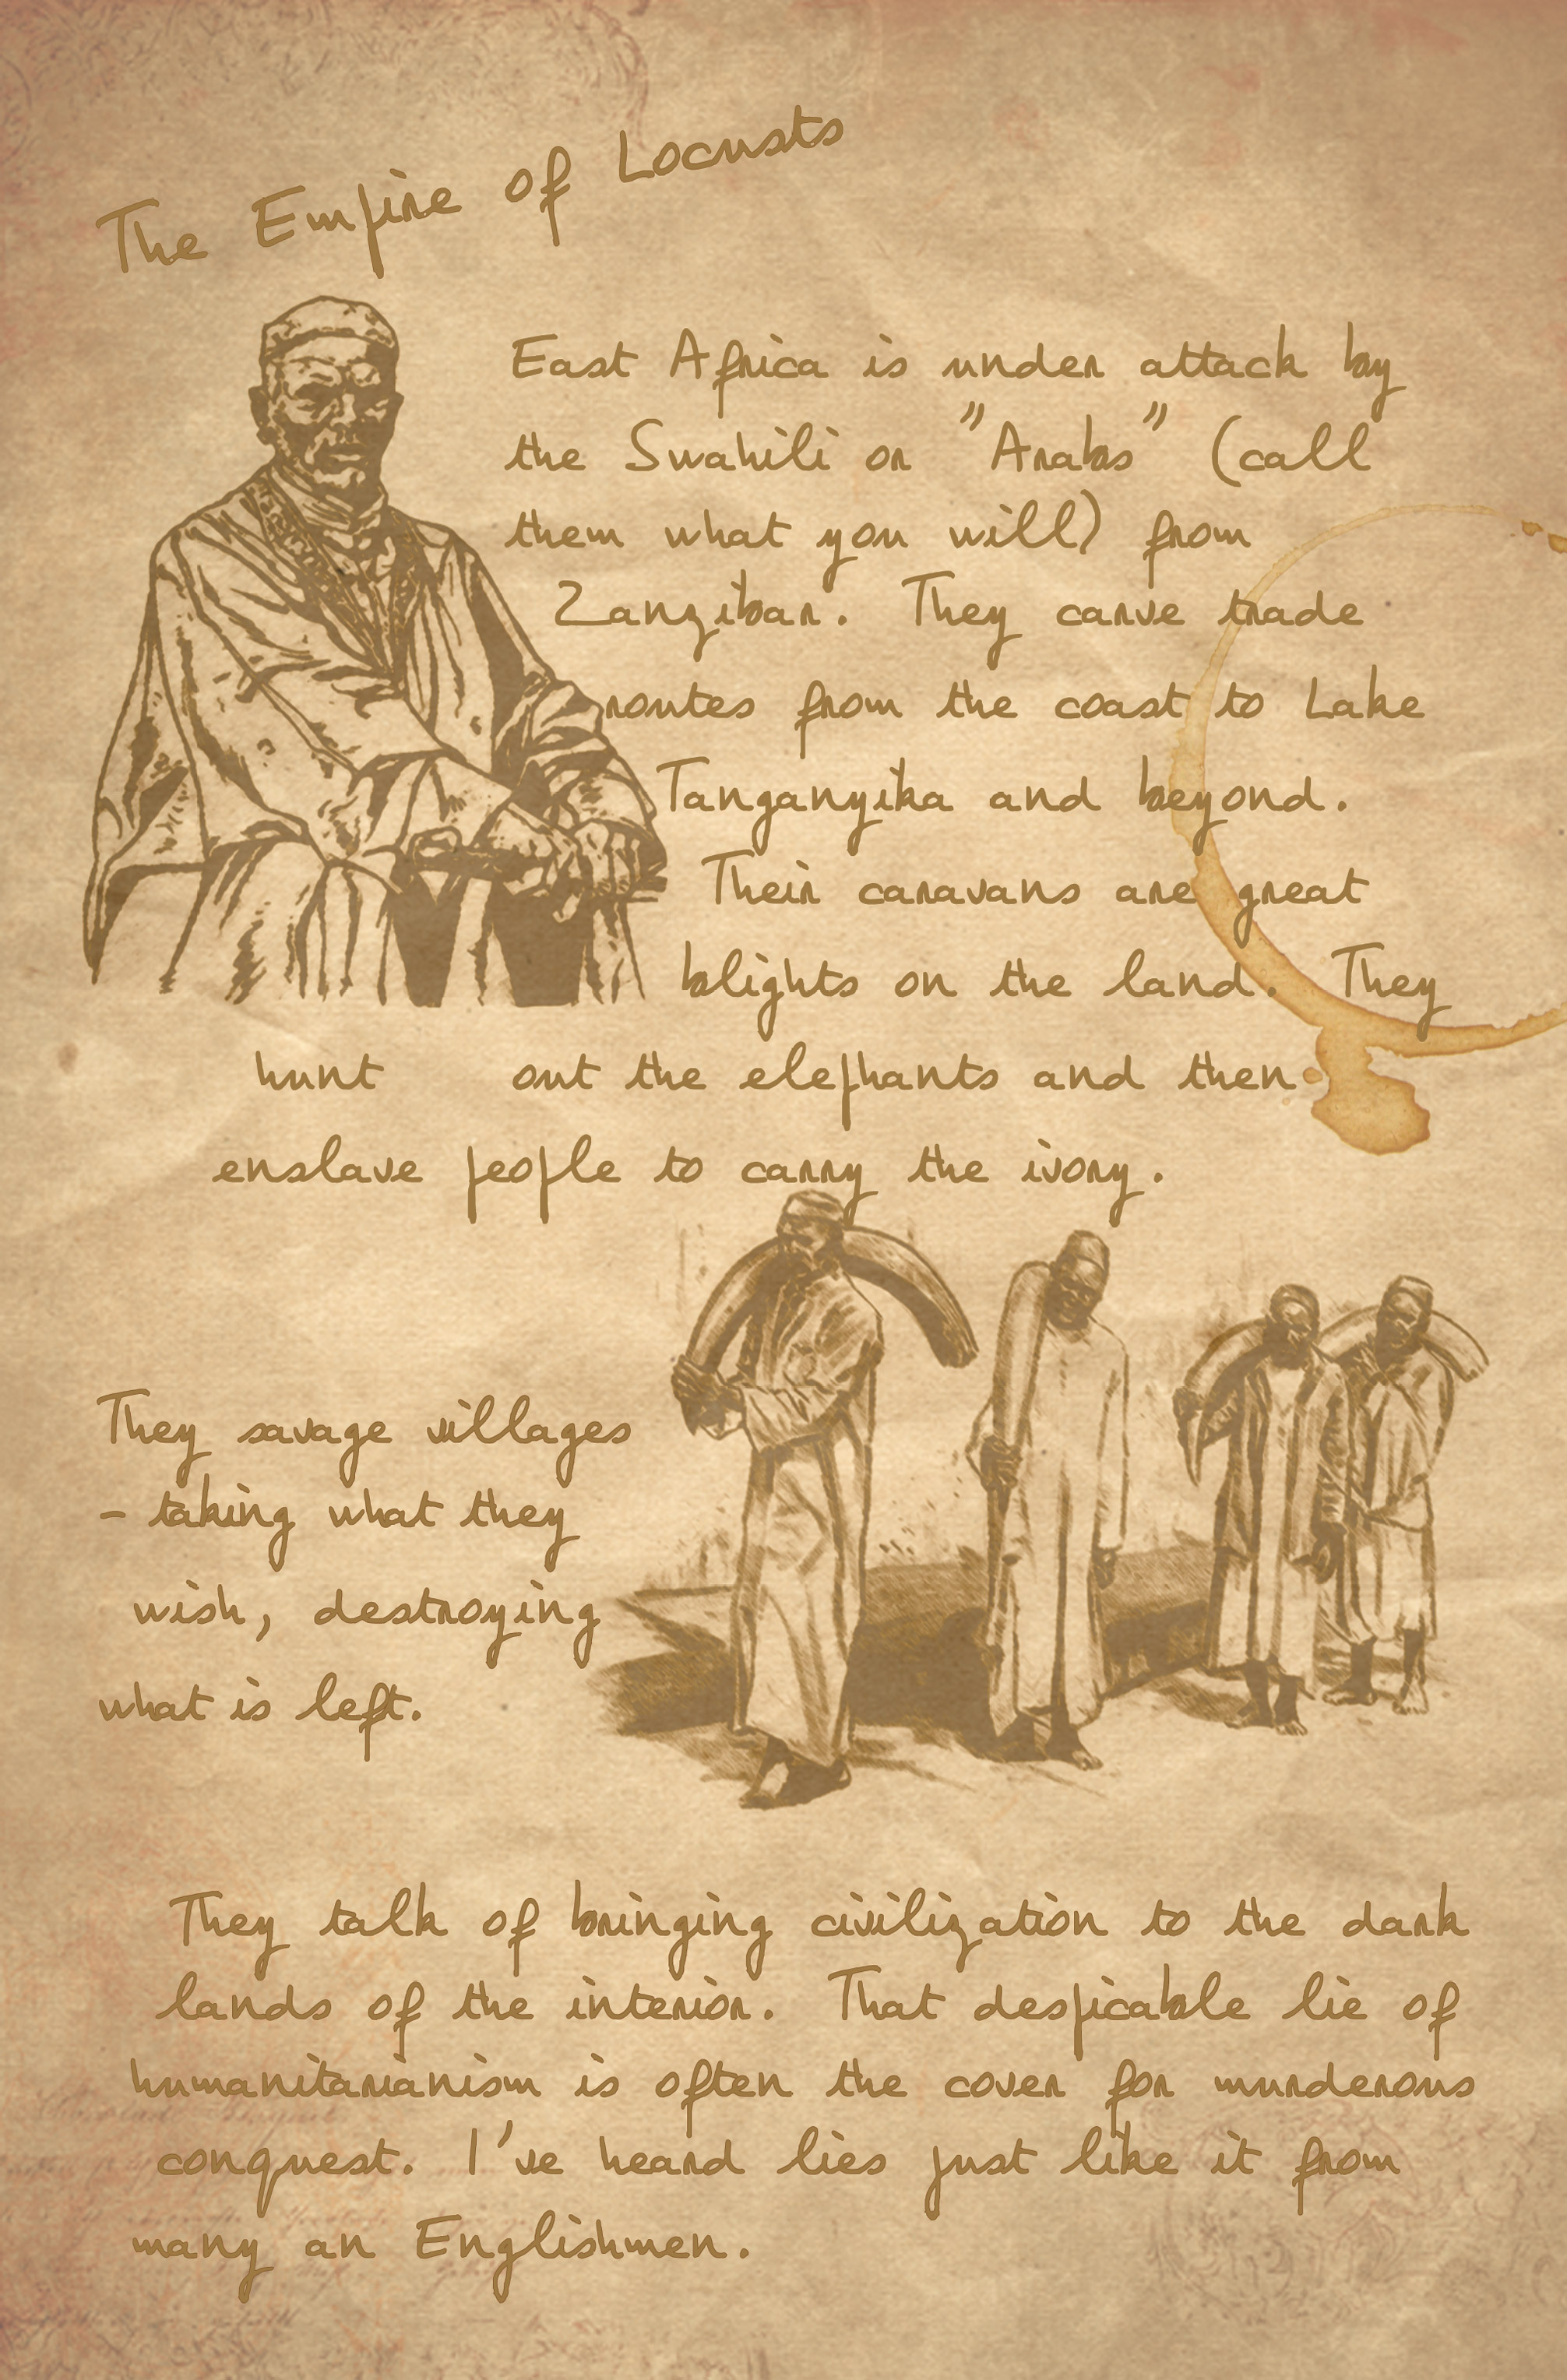 The Empire of Locusts
East Africa is under attack by
the Swahili or "Arabs" (call
them what you will) from
Zanzibar. They carve trade
routes from the coast to Lake
Tanganyika and beyond.
Their caravans are great
blights on the land. They
hunt out the elephants and then
enslave people to carry the ivory.
They savage villages
- taking what they
wish, destroying
what is left.
They talk of bringing civilization to the dark
lands of the interior. That despicable lie of
humanitarianism is often the cover for murderous
conquest. I've heard lies just like it from
many an Englishmen.